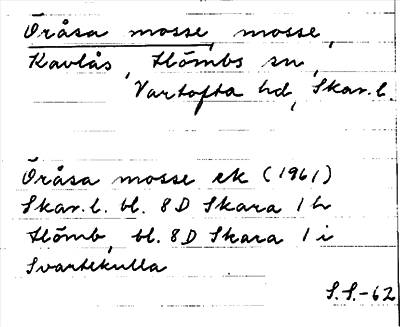 Öråsa mosse, mosse,
Kavlås, Hömbs sn,
Vartofta hd, Skar. l.
Öråsa mosse ek (1961)
Skar. l. bl. 8D Skara 1h
Hömb, bl. 8D Skara 1i
Svartekulla
S.S.-62